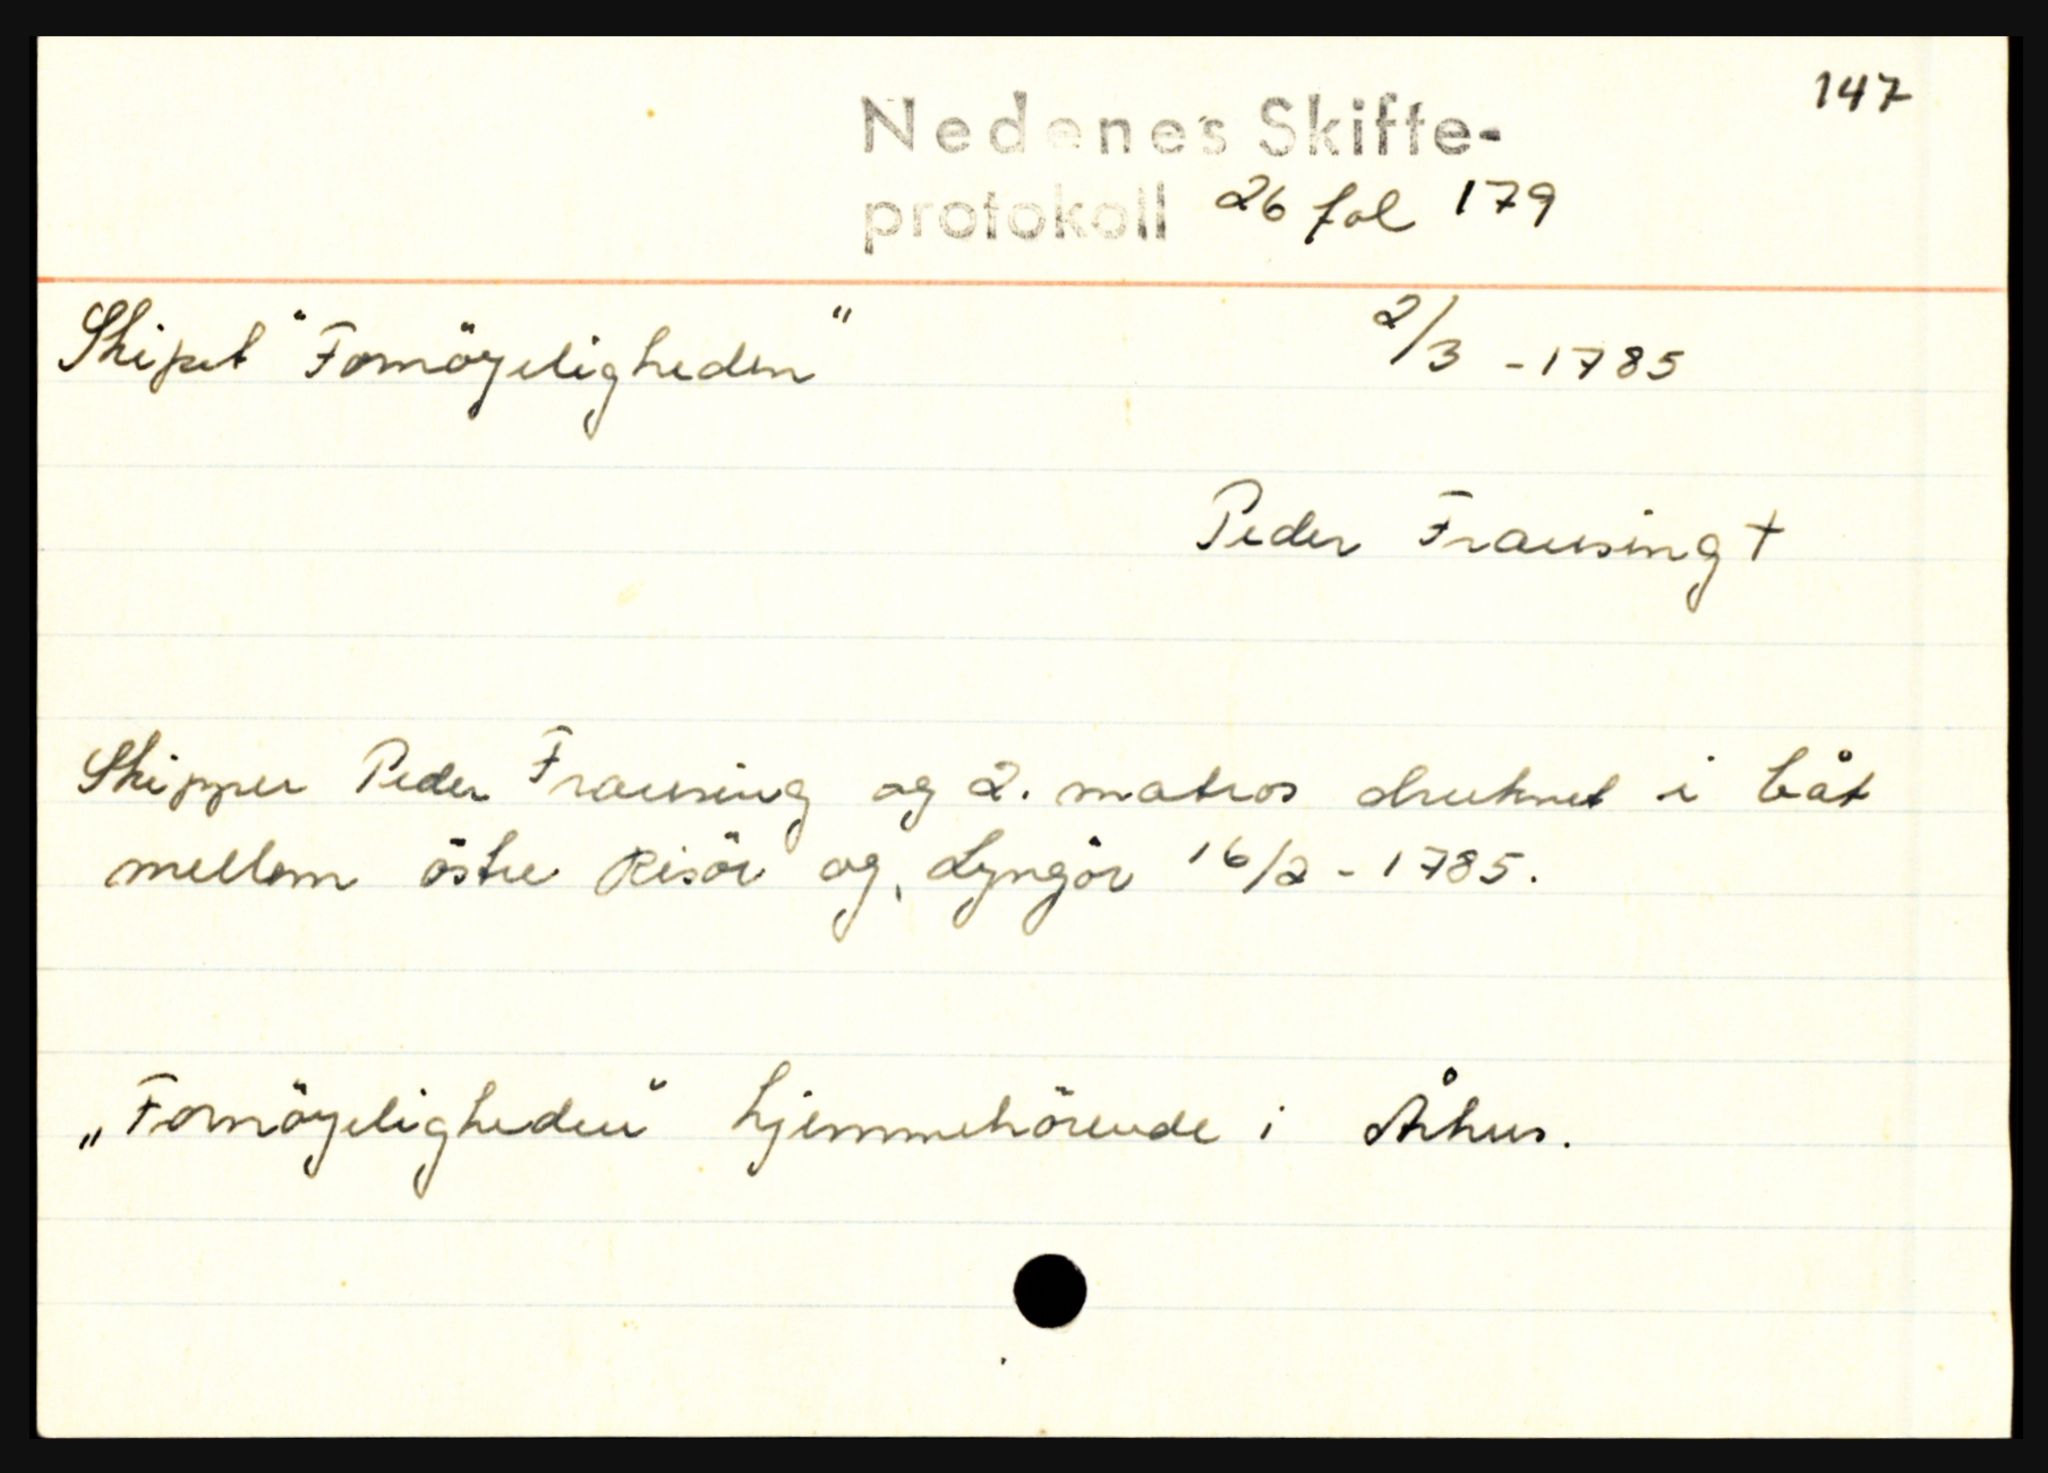 147
Nedenes Skifte-
protokoll 26 fol 179
Skipet "Fornöyeligheden" 2/3 - 1785
Peder Frausing +
Skipper Peder Frausing og 2. matros druknet i båt
mellom östre Risör og Lyngör 16/2 - 1785.
„Fornöyeligheden" hjemmehörende i Århus.